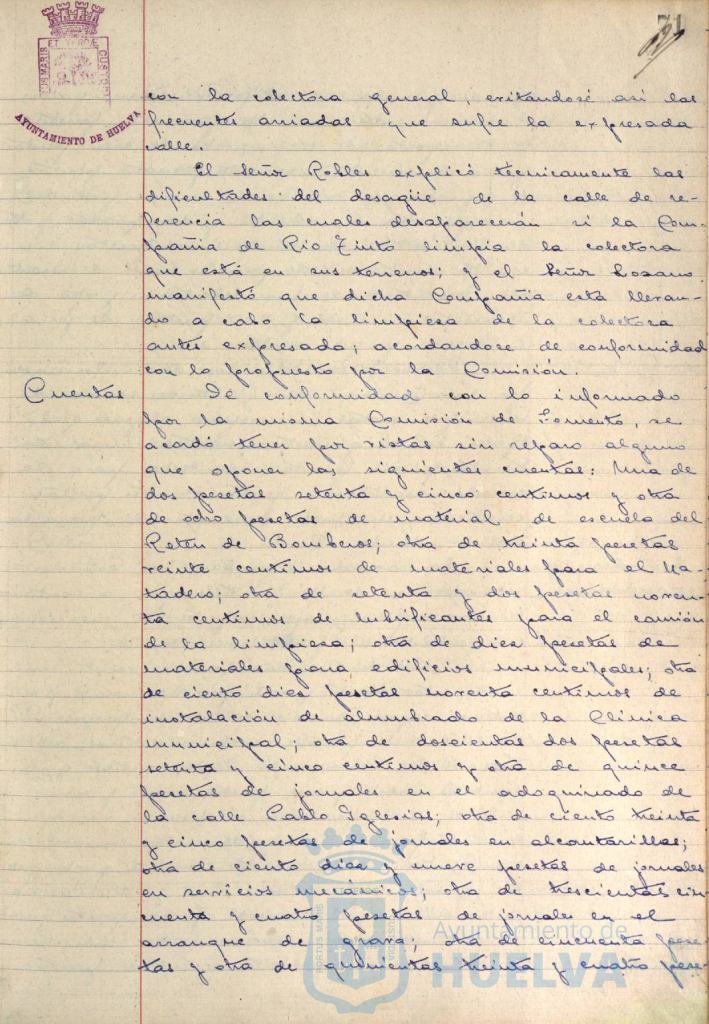 71
PORTUS MARIS ET TERRE CUSTODIA
AYUNTAMIENTO DE HUELVA
con la colectora general, evitandose asi las
frecuentes arriadas que sufre la expresada
calle.
El Señor Robles explicó técnicamente las
dificultades del desagüe de la calle de re-
ferencia las cuales desaparecerán si la Com-
pañia de Rio Tinto limpia la colectora
que está en sus terrenos; y el Señor Lozano
manifestó que dicha Compañia está llevan-
do a cabo la limpieza de la colectora
antes expresada; acordandose de conformidad
con lo propuesto por la Comisión.
Cuentas
De conformidad con lo informado
por la misma Comisión de Fomento, se
acordó tener por vistas sin reparo alguno
que oponer las siguientes cuentas: Una de
dos pesetas setenta y cinco centimos y otra
de ocho pesetas de material de escuela del
Reten de Bomberos; otra de treinta pesetas
veinte centimos de materiales para el Ma-
tadero; otra de setenta y dos pesetas noven-
ta centimos de lubrificantes para el camión
de la limpieza; otra de diez pesetas de
materiales para edificios municipales; otra
de ciento diez pesetas noventa centimos de
instalación de alumbrado de la Clinica
municipal; otra de doscientas dos pesetas
setenta y cinco centimos y otra de quince
pesetas de jornales en el adoquinado de
la calle Pablo Iglesias; otra de ciento treinta
y cinco pesetas de jornales en alcantarillas;
otra de ciento diez y nueve pesetas de jornales
en servicios mecanicos; otra de trescientas cin-
cuenta y cuatro pesetas de jornales en el
arranque de grava; otra de cincuenta pese-
tas y otra de quinientas treinta y cuatro pese-
Ayuntamiento de
HUELVA